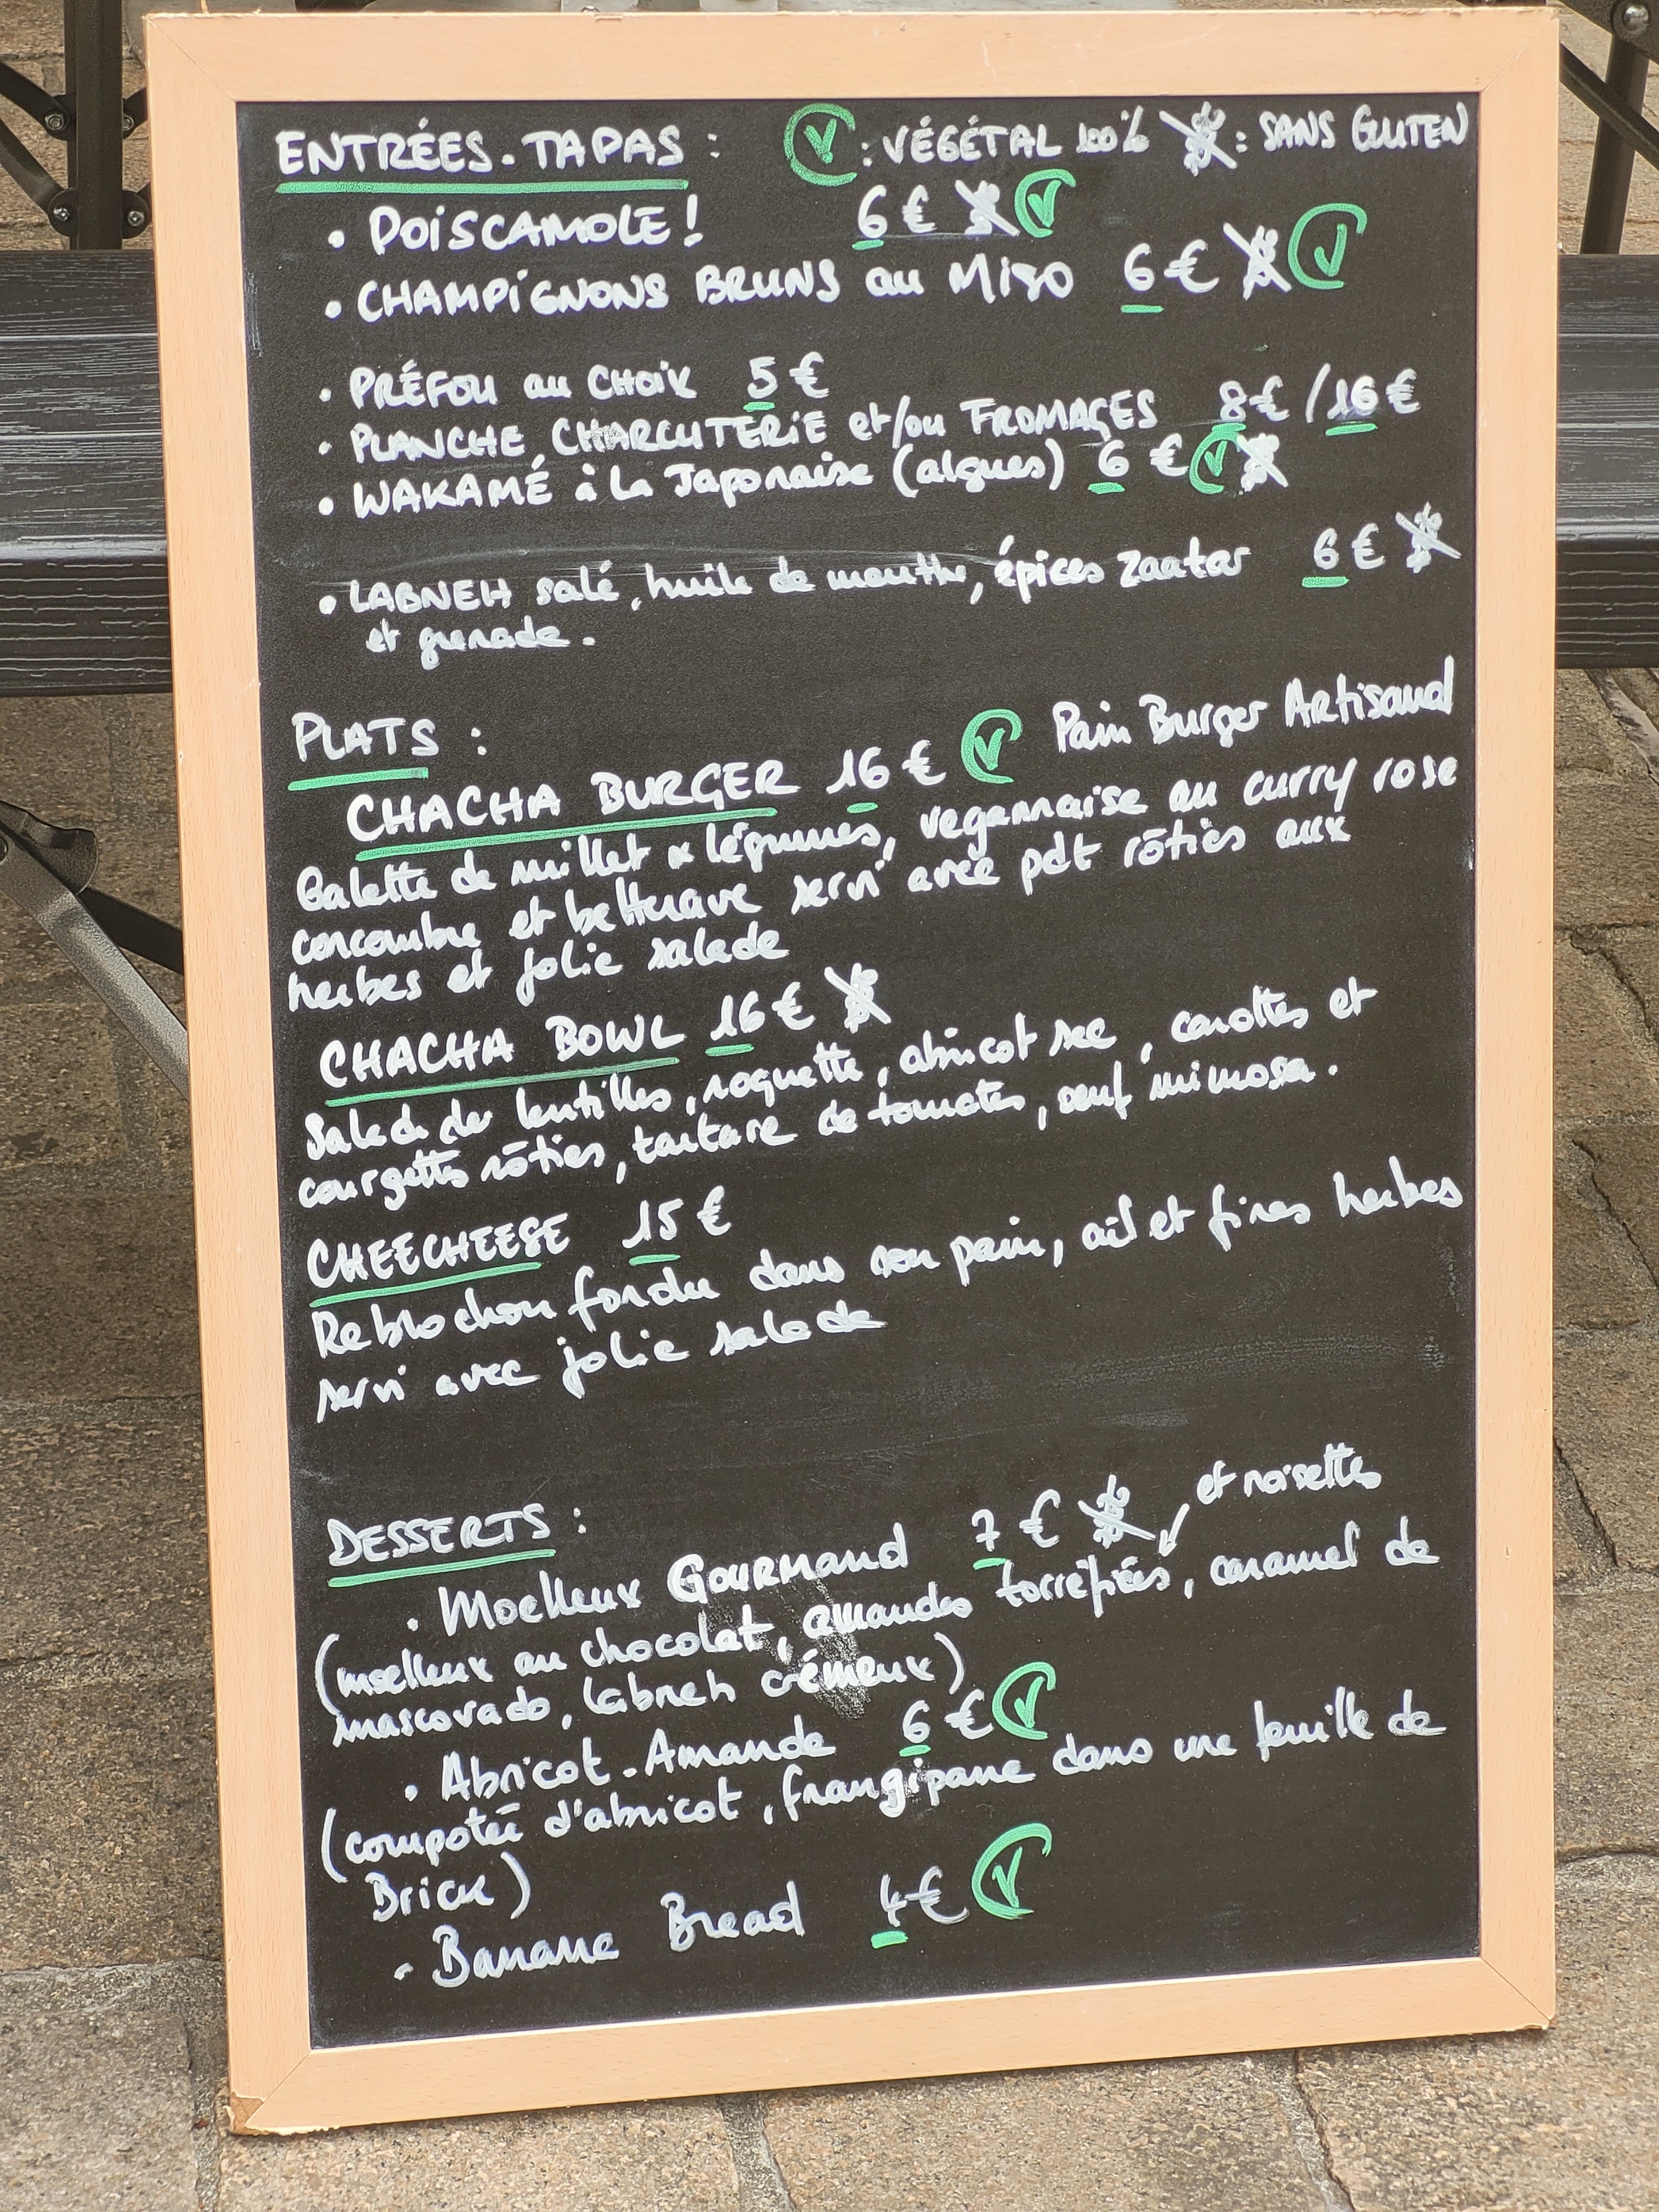 ENTRÉES-TAPAS : V : VÉGÉTAL 100% : SANS GLUTEN
• POISCAMOLE! 6€ V
• CHAMPIGNONS BRUNS au Miso 6€ V
• PRÉFOU au CHOIX 5€
• PLANCHE CHARCUTERIE et/ou FROMAGES 8€/16€
• WAKAMÉ à La Japonaise (algues) 6€ V
• LABNEH salé, huile de menthe, épices Zaatar 6€
et grenade.
PLATS :
CHACHA BURGER 16€ V Pain Burger Artisanal
Galette de millet x légumes, vegannaise au curry rose
concombre et betterave servi avec pdt rôties aux
herbes et jolie salade
CHACHA BOWL 16€
Salade de lentilles, roquette, abricot sec, carottes et
courgettes rôties, tartare de tomates, oeuf mimosa.
CHEECHEESE 15€
Reblochon fondu dans son pain, ail et fines herbes
servi avec jolie salade
DESSERTS :
et noisettes
• Moelleux Gourmand 7€
(moelleux au chocolat, amandes torréfiées, caramel de
mascovado, labneh crémeux)
• Abricot-Amande 6€ V
(compotée d'abricot, frangipane dans une feuille de
Brick)
- Banane Bread 4€ V